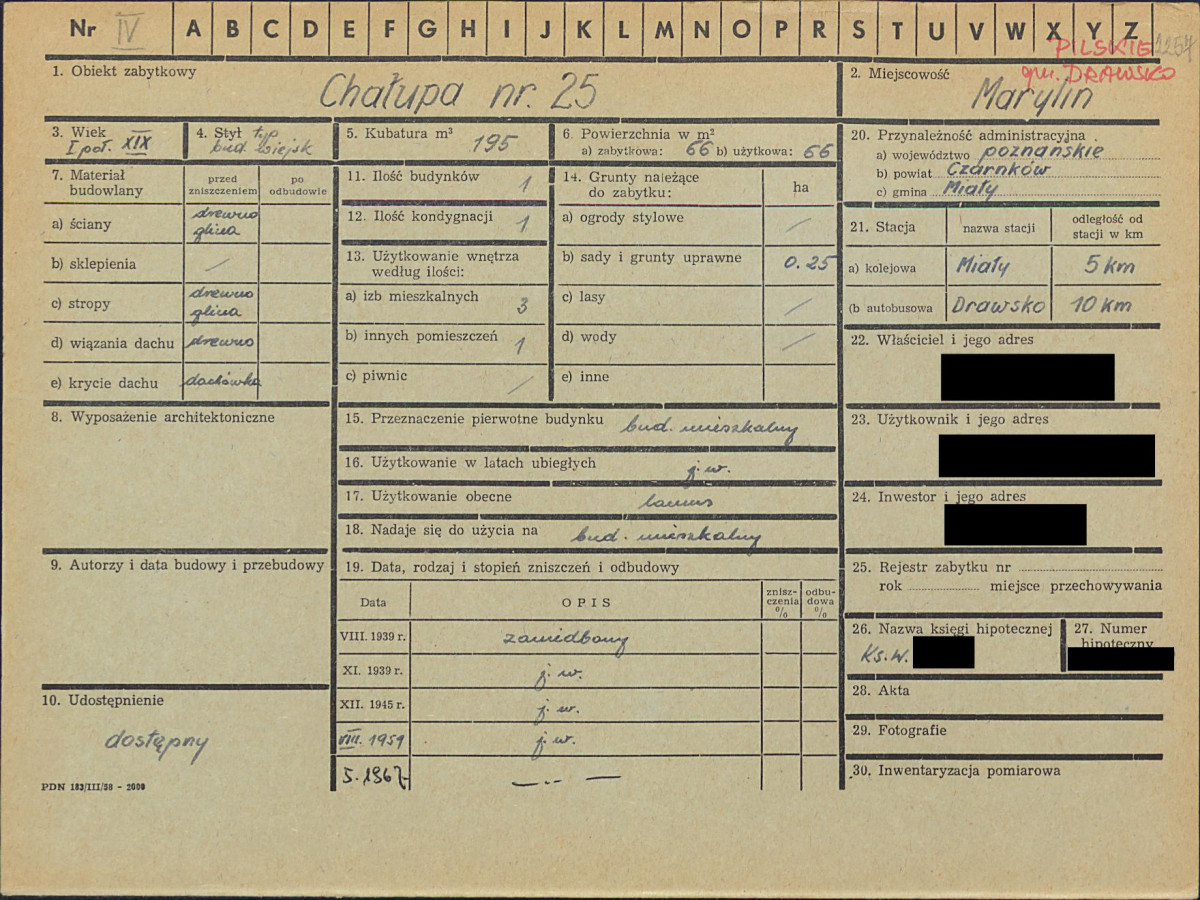 Nr IV A B C D E F G H I J K L M N O P R S T U V W X Y Z
PILSKIE 1257
gm. DRAWSKO
1. Obiekt zabytkowy
Chałupa nr. 25
2. Miejscowość
Marylin
3. Wiek
I poł. XIX
4. Styl typ
bud. wiejsk
5. Kubatura m³ 195
6. Powierzchnia w m²
a) zabytkowa: 66 b) użytkowa: 66
7. Materiał budowlany
przed zniszczeniem
po odbudowie
a) ściany drewno glina
b) sklepienia /
c) stropy drewno glina
d) wiązania dachu drewno
e) krycie dachu dachówka
8. Wyposażenie architektoniczne
9. Autorzy i data budowy i przebudowy
10. Udostępnienie
dostępny
PDN 183/III/58 - 2000
11. Ilość budynków 1
12. Ilość kondygnacji 1
13. Użytkowanie wnętrza
według ilości:
a) izb mieszkalnych 3
b) innych pomieszczeń 1
c) piwnic /
14. Grunty należące
do zabytku: ha
a) ogrody stylowe /
b) sady i grunty uprawne 0.25
c) lasy /
d) wody /
e) inne
15. Przeznaczenie pierwotne budynku bud. mieszkalny
16. Użytkowanie w latach ubiegłych j.w.
17. Użytkowanie obecne lamus
18. Nadaje się do użycia na bud. mieszkalny
19. Data, rodzaj i stopień zniszczeń i odbudowy
Data OPIS zniszczenia % odbudowa %
VIII. 1939 r. zaniedbany
XI. 1939 r. j. w.
XII. 1945 r. j. w.
VIII. 1959 j. w.
5. 1967 — .. —
20. Przynależność administracyjna
a) województwo poznańskie
b) powiat Czarnków
c) gmina Miały
21. Stacja nazwa stacji odległość od stacji w km
a) kolejowa Miały 5 km
(b autobusowa Drawsko 10 km
22. Właściciel i jego adres
23. Użytkownik i jego adres
24. Inwestor i jego adres
25. Rejestr zabytku nr
rok miejsce przechowywania
26. Nazwa księgi hipotecznej
Ks.W.
27. Numer
hipoteczny
28. Akta
29. Fotografie
30. Inwentaryzacja pomiarowa